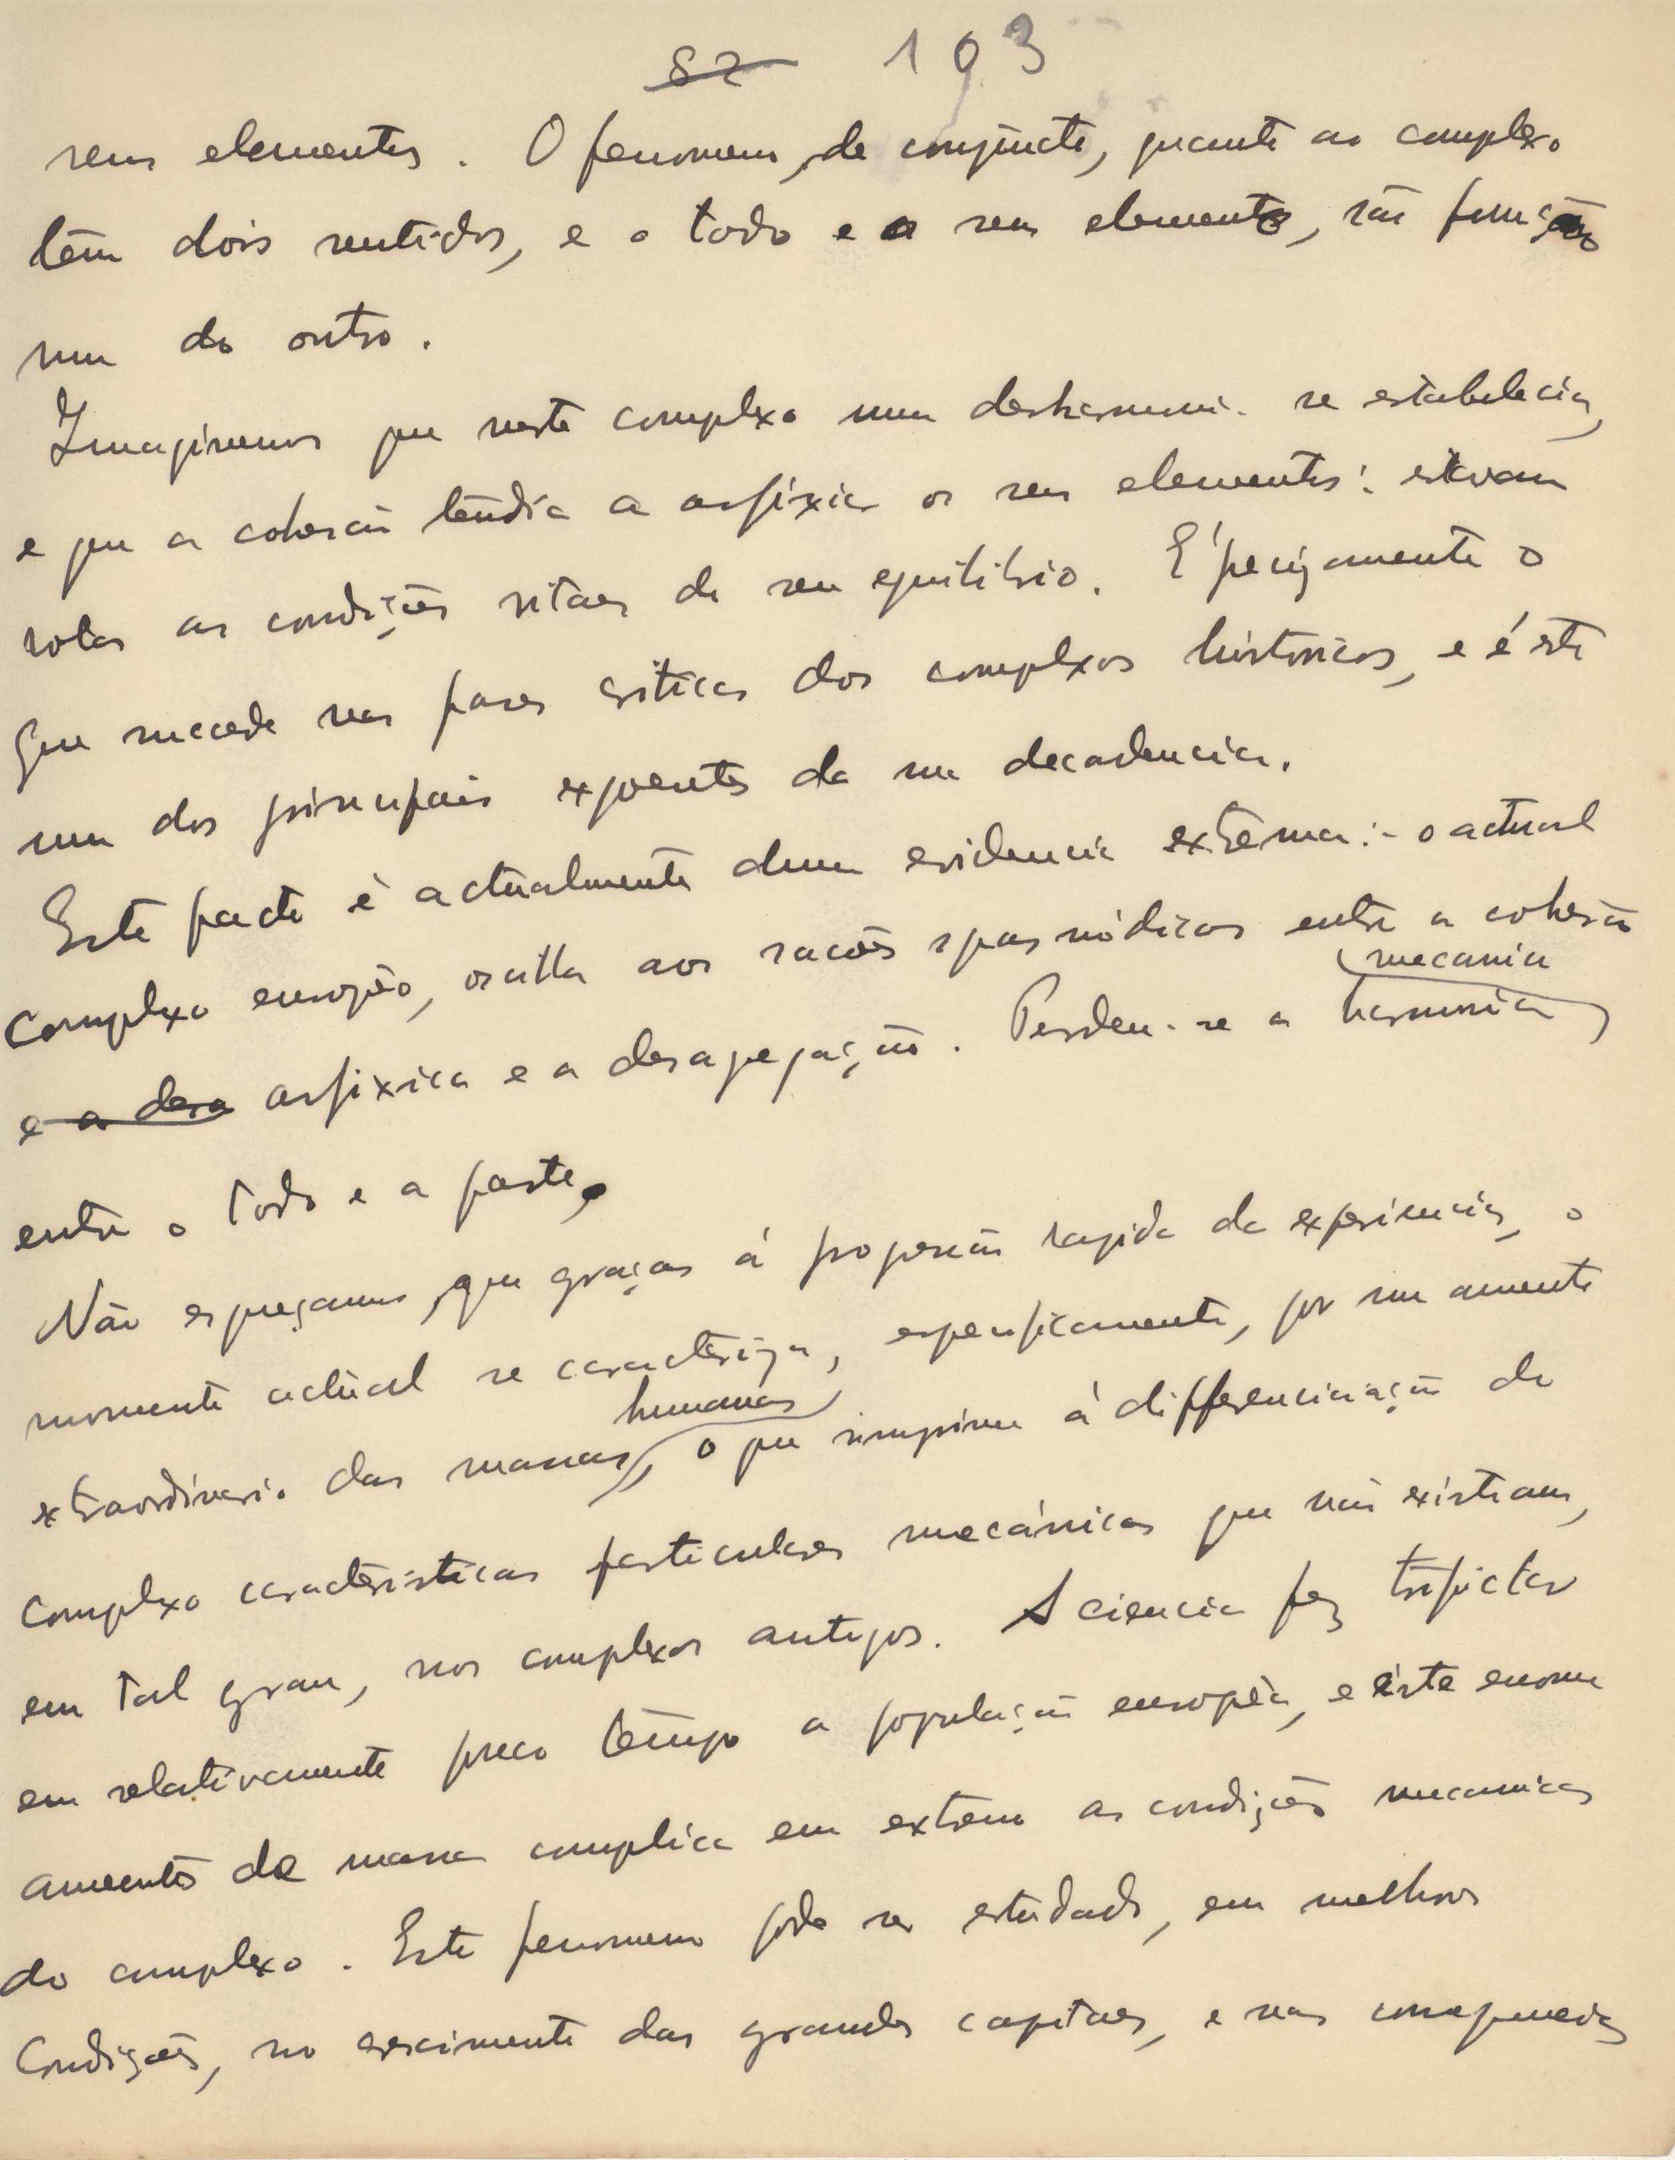 82 193
seus elementos. O fenomeno, de conjuncto, quanto ao complexo
têm dois sentidos, e o todo e o seu elemento, são função
um do outro.
Imaginemos que neste complexo uma desharmonia se estabelecia,
e que a cohesão tendia a asfixiar os seus elementos: estavam
rotas as condições vitaes do seu equilibrio. É precizamente o
que succede nas fases criticas dos complexos históricos, e é este
um dos principais expoentes da sua decadencia.
Este facto é actualmente duma evidencia extrema: - o actual
complexo europêo, oscilla aos sacões espasmódicos entre a cohesão
mecanica
e a desa asfixica e a desagregação. Perdeu-se a harmonia
entre o todo e a parte.
Não esqueçamos, que graças á progressão rapida da experiencia, o
momento actual se caracteriza, especificamente, por um aumento
humanas
extraordinario das massas, o que imprime á differenciação do
complexo caracteristicas particulares mecánicas que não existiam,
em tal grau, nos complexos antigos. A ciencia fez triplicar
em relativamente pouco tempo a população européa, e êste enorme
aumento de massa complica em extremo as condições mecanicas
do complexo. Este fenomeno pode ser estudado, em melhores
condições, no crescimento das grandes capitaes, e nas consequencias